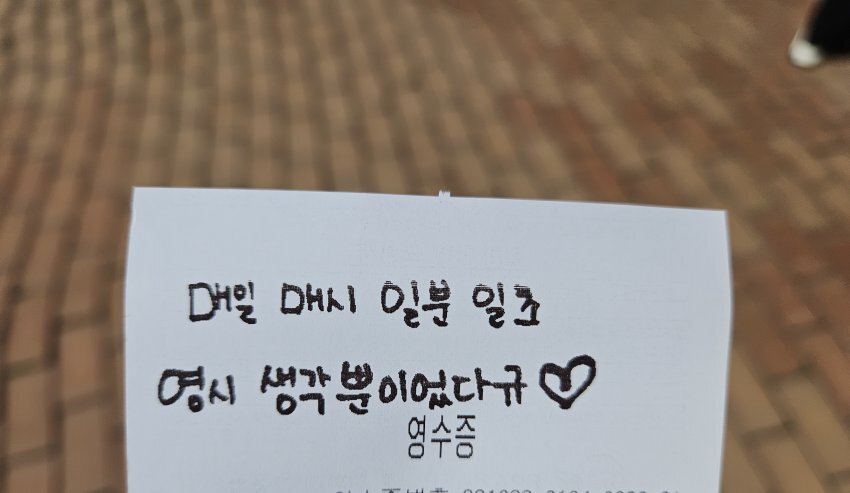 매일 매시 일분 일초
영시 생각뿐이었다규♡
영수증